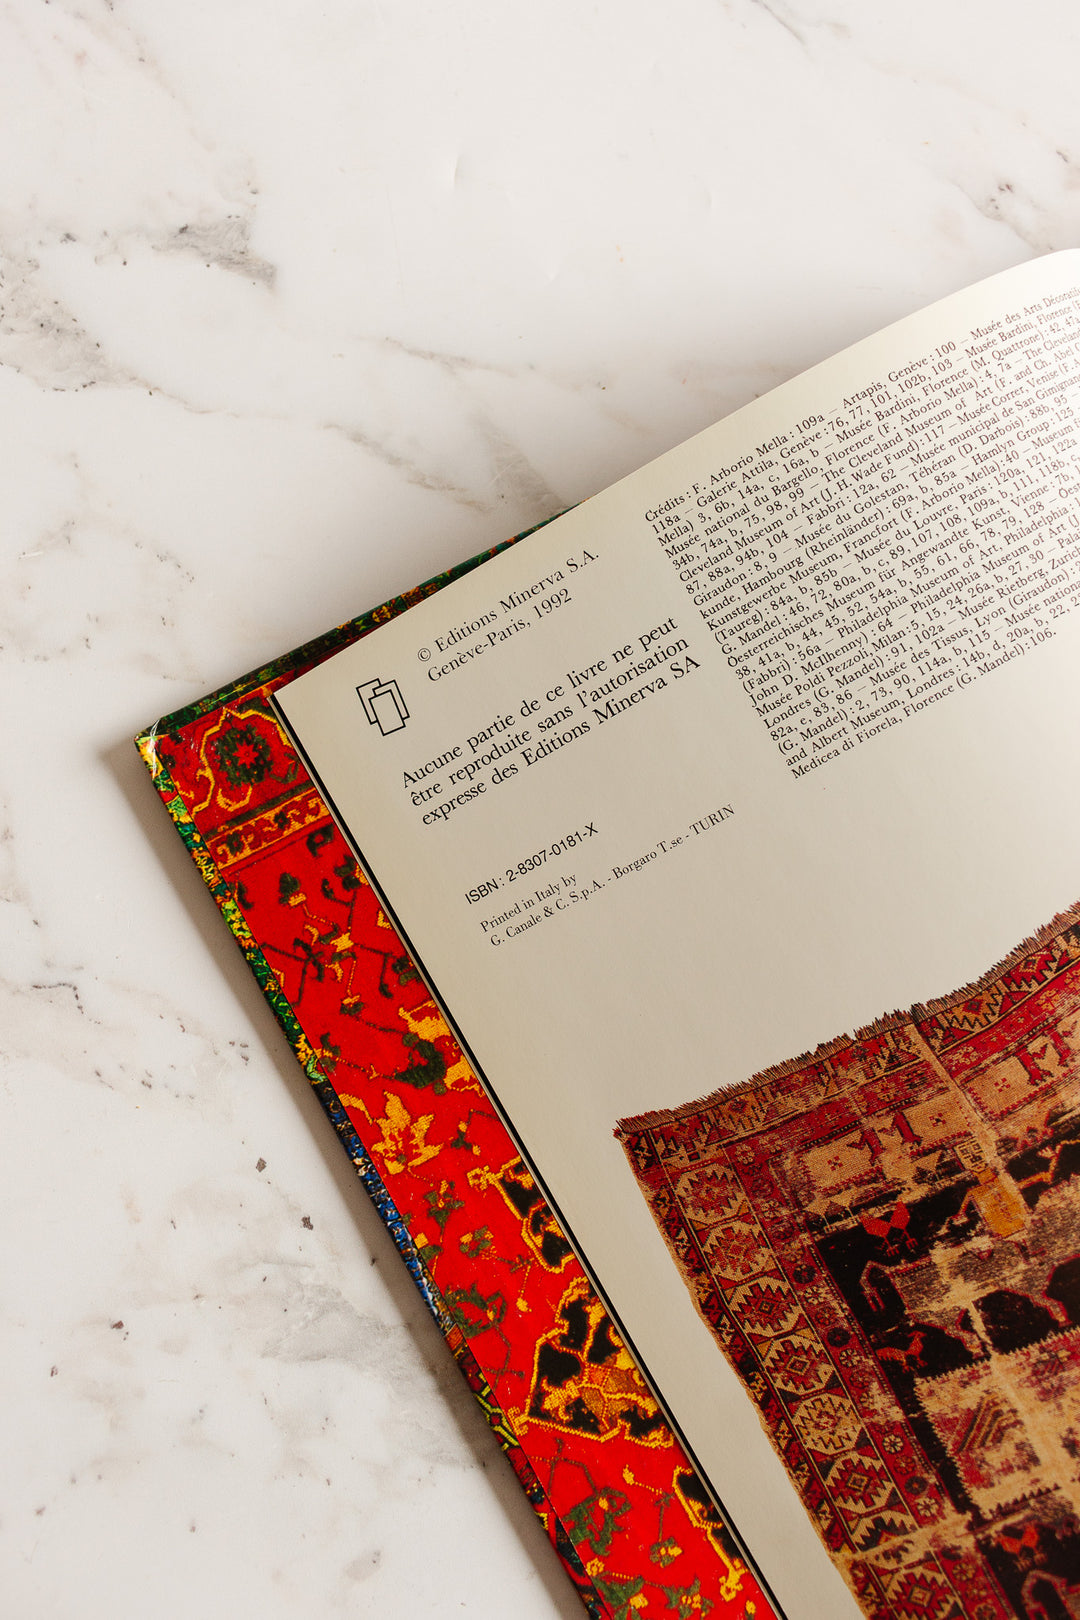 © Editions Minerva S.A.
Genève-Paris, 1992
Aucune partie de ce livre ne peut
être reproduite sans l'autorisation
expresse des Editions Minerva SA
ISBN : 2-8307-0181-X
Printed in Italy by
G. Canale & C. S.p.A. - Borgaro T.se - TURIN
Crédits : F. Arborio Mella : 109a – Artapis, Genève : 100 – Musée des Arts Décoratifs
118a – Galerie Attila, Genève : 76, 77, 101, 102b, 103 – Musée Bardini, Florence
Mella) 3, 6b, 14a, c, 16a, b – Musée Bardini, Florence (M. Quattrone) : 42, 47a
Musée national du Bargello, Florence (F. Arborio Mella) : 4, 7a – The Cleveland
34b, 74a, b, 75, 98, 99 – The Cleveland Museum of Art (F. and Ch. Abel
Cleveland Museum of Art (J. H. Wade Fund) : 117 – Musée Correr, Venise (F.
87, 88a, 94b, 104 – Fabbri : 12a, 62 – Musée municipal de San Gimignano
Giraudon : 8, 9 – Musée du Golestan, Téhéran (D. Darbois) : 88b, 95
kunde, Hambourg (Rheinländer) : 69a, b, 85a – Hamlyn Group : 125
Kunstgewerbe Museum, Francfort (F. Arborio Mella) : 40 – Museum
(Taureg) : 84a, b, 85b – Musée du Louvre, Paris : 120a, 121, 122a
G. Mandel : 46, 72, 80a, b, c, 89, 107, 108, 109a, b, 111, 118b, c,
Oesterreichisches Museum für Angewandte Kunst, Vienne : 7b,
38, 41a, b, 44, 45, 52, 54a, b, 55, 61, 66, 78, 79, 128 – Oest
(Fabbri) : 56a – Philadelphia Museum of Art, Philadelphia
John D. McIlhenny) : 64 – Philadelphia Museum of Art (J
Musée Poldi Pezzoli, Milan : 5, 15, 24, 26a, b, 27, 30 – Pala
Londres (G. Mandel) : 91, 102a – Musée Rietberg, Zurich
82a, c, 83, 86 – Musée des Tissus, Lyon (Giraudon) :
(G. Mandel) : 2, 73, 90, 114a, b, 115 – Musée nation
and Albert Museum, Londres : 14b, d, 20a, b, 22, 2
Medicea di Fiorela, Florence (G. Mandel) : 106.